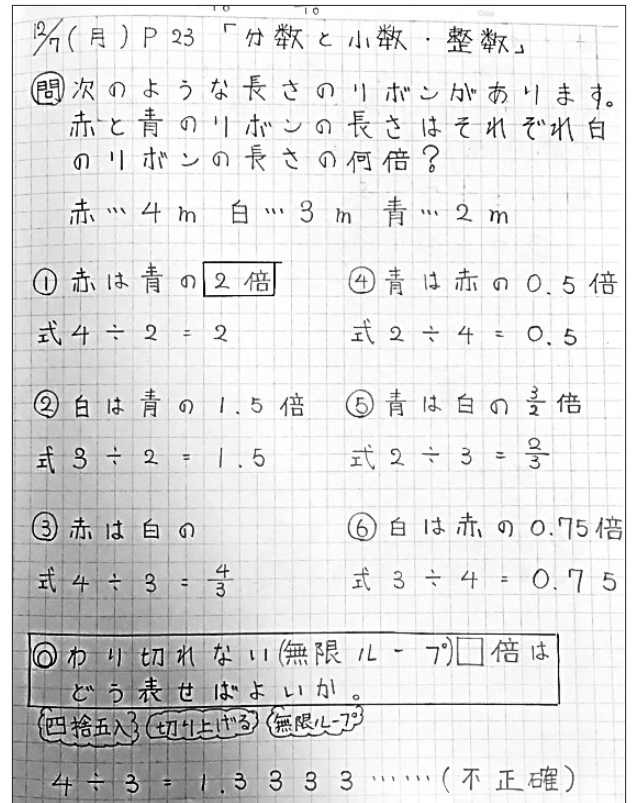 12/7(月) P 23 「分数と小数・整数」
問 次のような長さのリボンがあります。
赤と青のリボンの長さはそれぞれ白
のリボンの長さの何倍？
赤…4m 白…3m 青…2m
① 赤は青の 2倍
式 4÷2=2
② 白は青の 1.5倍
式 3÷2=1.5
③ 赤は白の
式 4÷3=4/3
④ 青は赤の 0.5倍
式 2÷4=0.5
⑤ 青は白の 3/2倍
式 2÷3=2/3
⑥ 白は赤の 0.75倍
式 3÷4=0.75
わり切れない(無限ループ)□倍は
どう表せばよいか。
四捨五入 切り上げる 無限ループ
4÷3=1.3333……(不正確)